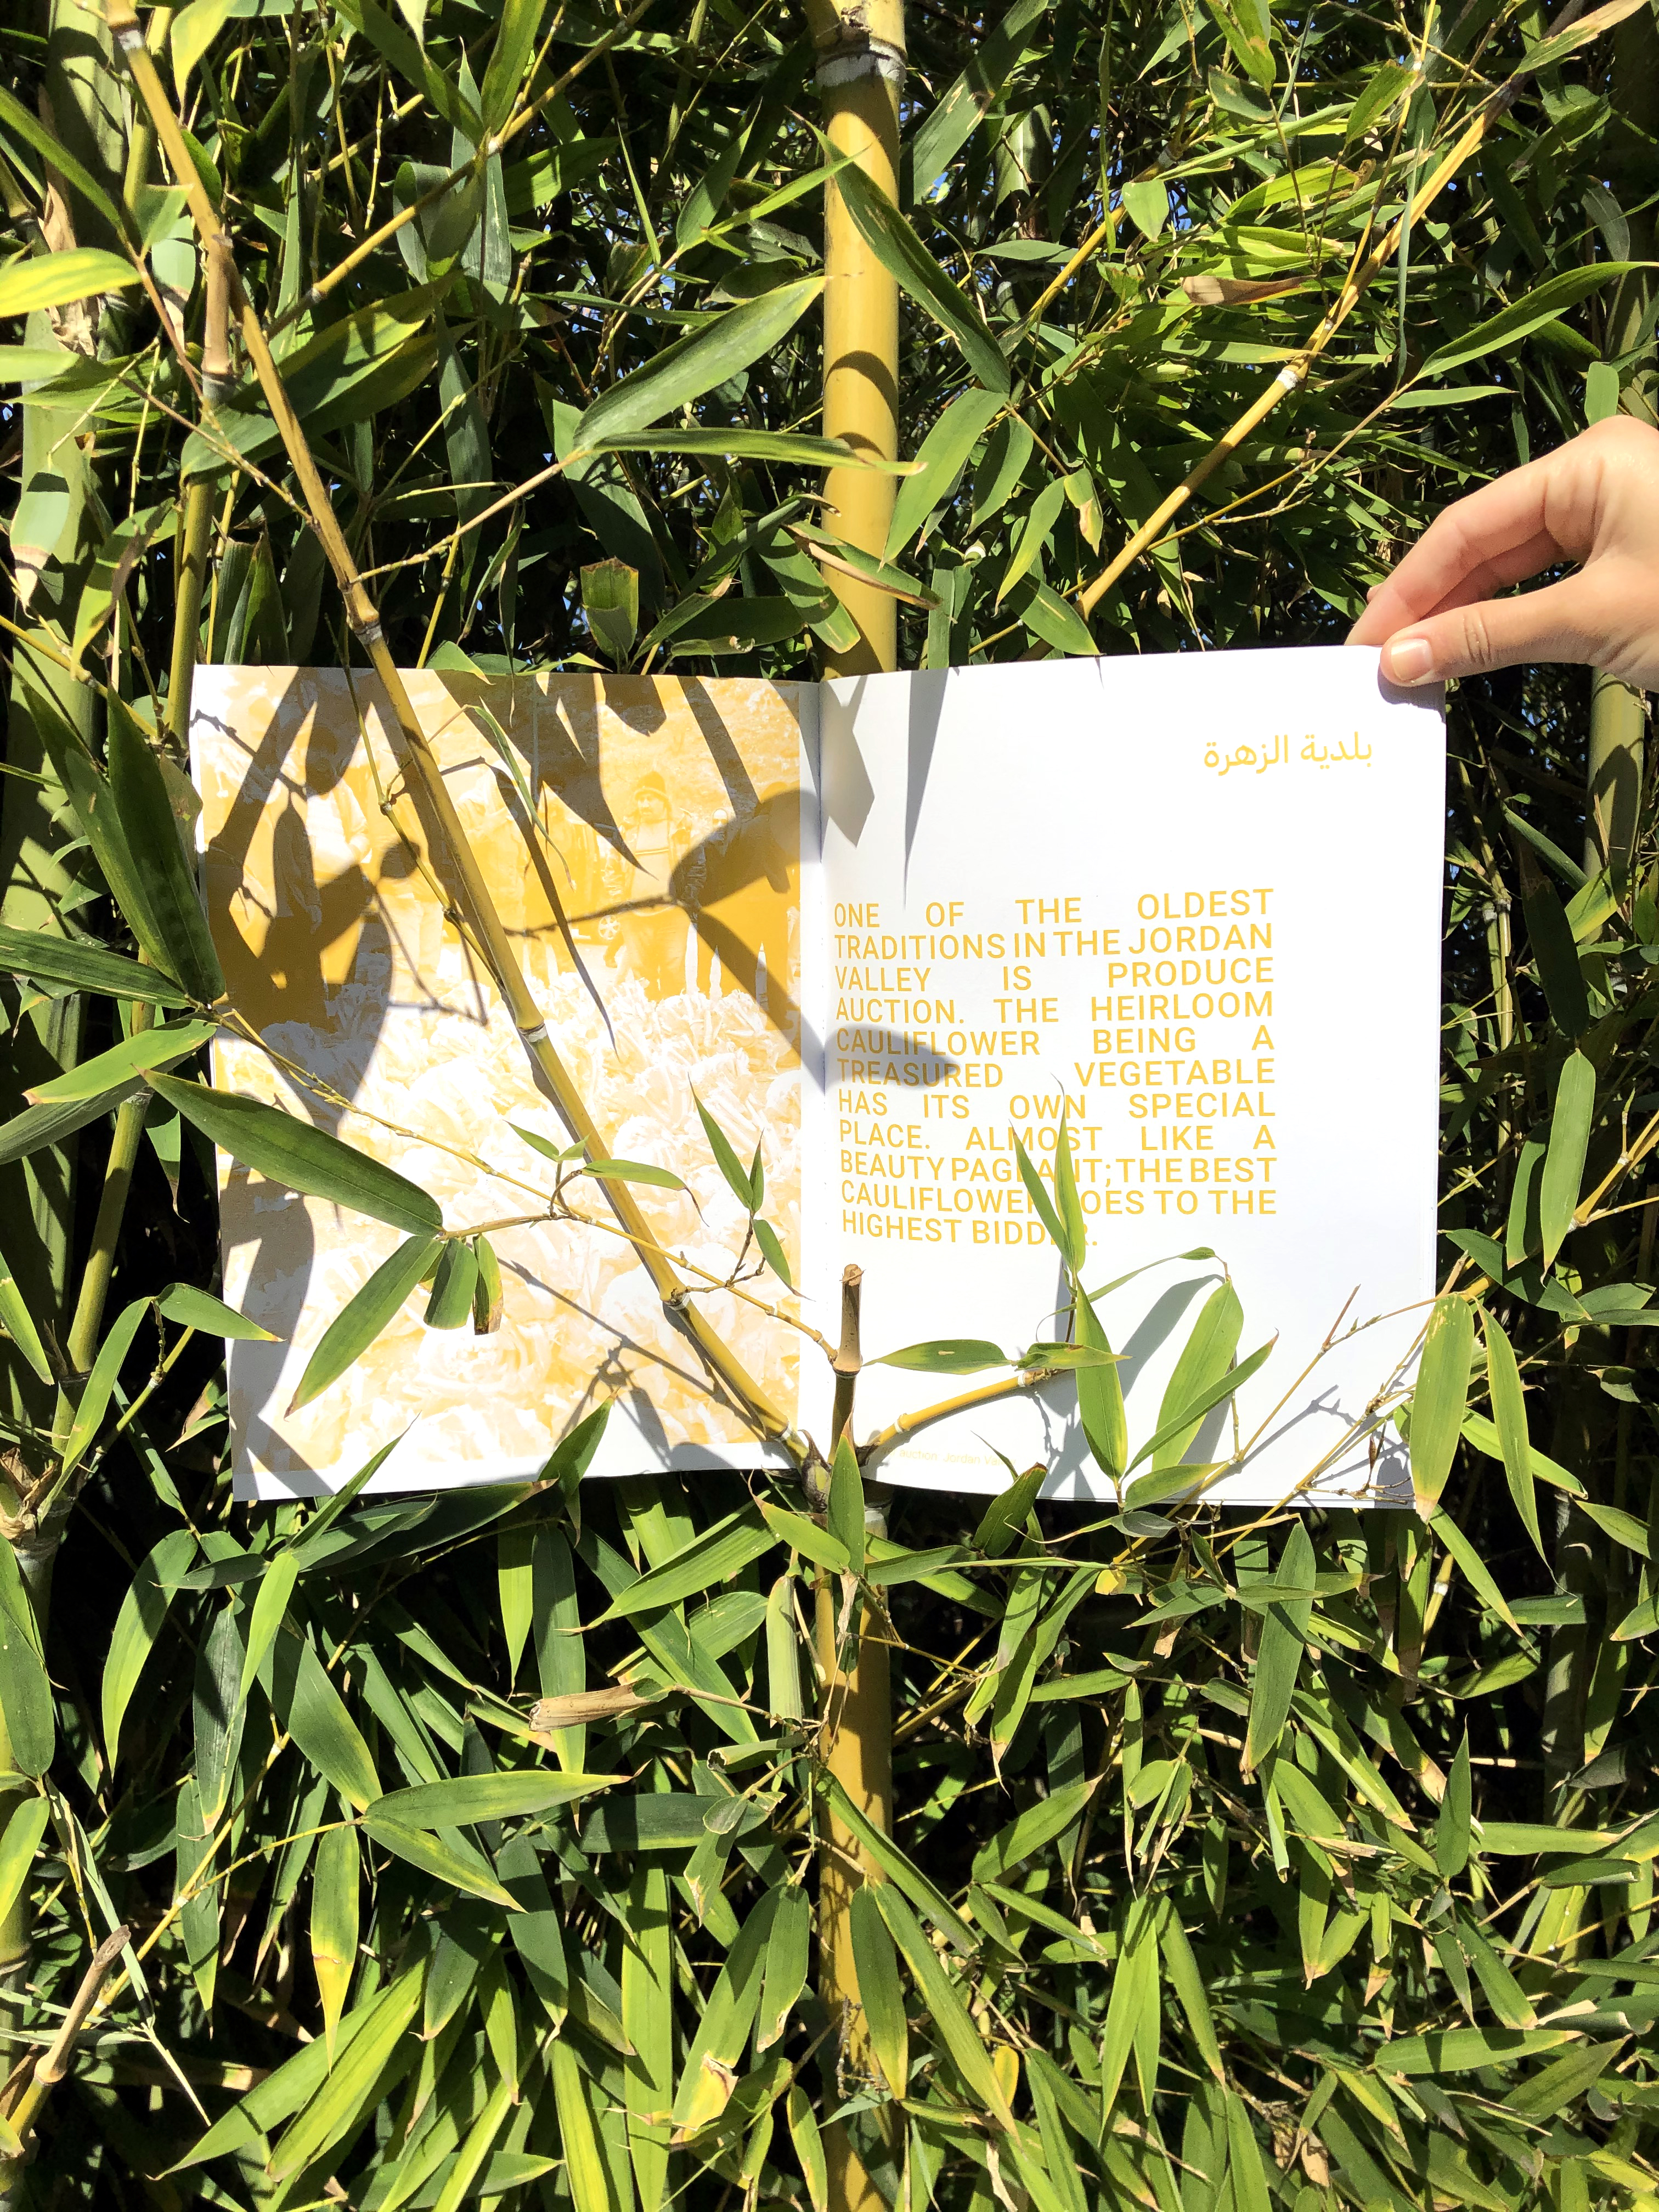 بلدية الزهرة
ONE OF THE OLDEST
TRADITIONS IN THE JORDAN
VALLEY IS PRODUCE
AUCTION. THE HEIRLOOM
CAULIFLOWER BEING A
TREASURED VEGETABLE
HAS ITS OWN SPECIAL
PLACE. ALMOST LIKE A
BEAUTY PAGEANT; THE BEST
CAULIFLOWER GOES TO THE
HIGHEST BIDDER.
auction Jordan